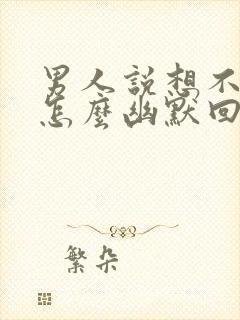 男人說想不
怎麼幽默回
繁朵